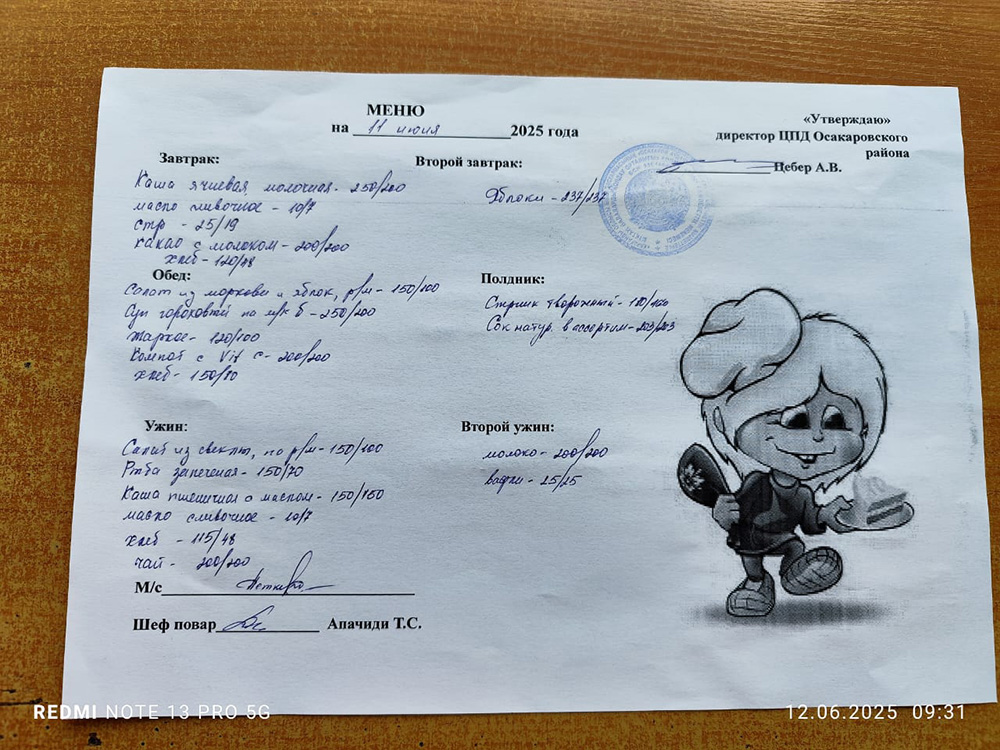 МЕНЮ
на 11 июня 2025 года
«Утверждаю»
директор ЦПД Осакаровского
района
Цебер А.В.
Завтрак:
Каша ячневая молочная - 250/200
масло сливочное - 10/7
сыр - 25/19
какао с молоком - 200/200
хлеб - 120/48
Второй завтрак:
Яблоки - 237/237
Обед:
Салат из моркови и яблок, р/м - 150/100
Суп гороховый на м/к б - 250/200
Жаркое - 120/100
Компот с Vit С - 200/200
хлеб - 150/80
Полдник:
творожный -
Сок натур. в ассортим - 203/203
Ужин:
Салат из свеклы, по р/м - 150/100
Рыба запеченая - 150/70
Каша пшеничная с маслом - 150/150
масло сливочное - 10/7
хлеб - 115/48
чай - 200/200
Второй ужин:
молоко - 200/200
вафли - 25/25
М/с
Шеф повар Апачиди Т.С.
REDMI NOTE 13 PRO 5G
12.06.2025 09:31